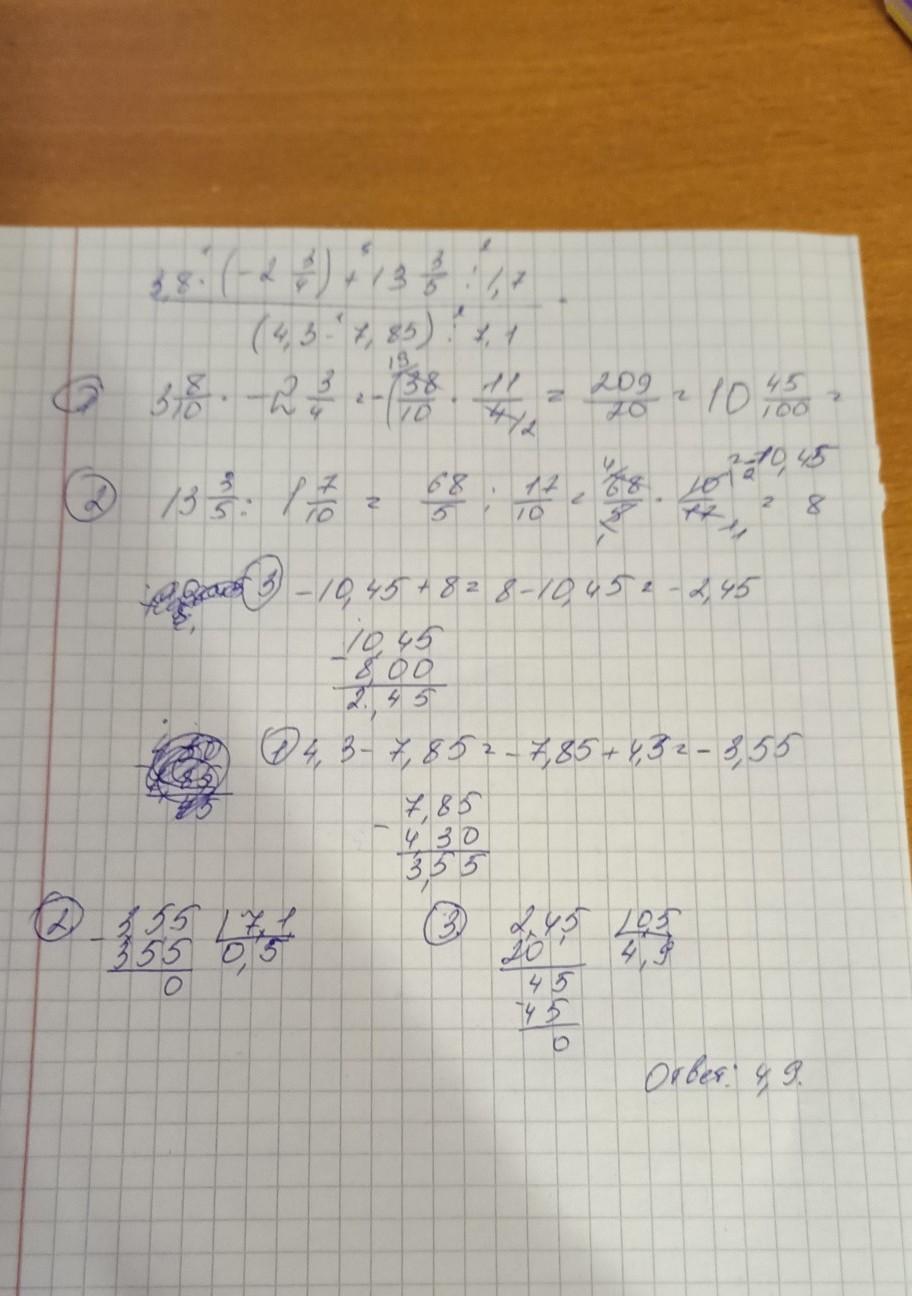 3,8 · (-2 3/4) + 13 3/5 : 1,7
(4,3 - 7,85) : 7,1
① 3 8/10 · -2 3/4 = -(38/10 · 11/4 = 209/20 = 10 45/100 =
= -10,45
② 13 3/5 : 1 7/10 = 68/5 : 17/10 = 68/5 · 10/17 = 8
③ -10,45 + 8 = 8 - 10,45 = -2,45
- 10,45
8,00
2,45
① 4,3 - 7,85 = -7,85 + 4,3 = -3,55
- 7,85
4,30
3,55
② - 3,55 | 7,1
355 0,5
0
③ 2,45 | 0,5
20 4,9
45
-45
0
Ответ: 4,9.